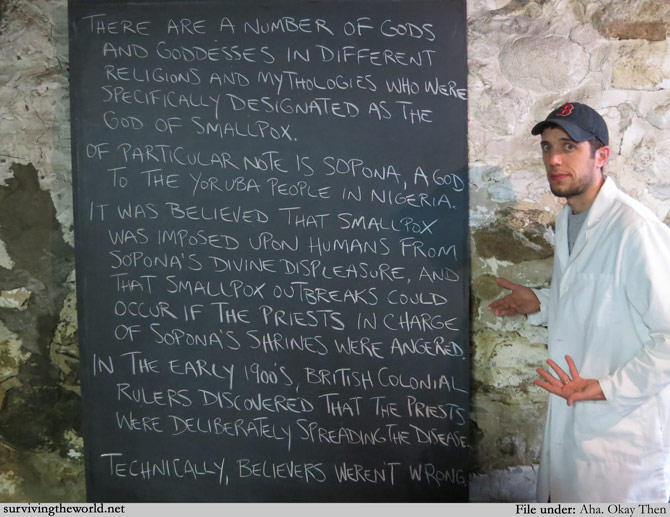 THERE ARE A NUMBER OF GODS
AND GODDESSES IN DIFFERENT
RELIGIONS AND MYTHOLOGIES WHO WERE
SPECIFICALLY DESIGNATED AS THE
GOD OF SMALLPOX.
OF PARTICULAR NOTE IS SOPONA, A GOD
TO THE YORUBA PEOPLE IN NIGERIA.
IT WAS BELIEVED THAT SMALLPOX
WAS IMPOSED UPON HUMANS FROM
SOPONA'S DIVINE DISPLEASURE, AND
THAT SMALLPOX OUTBREAKS COULD
OCCUR IF THE PRIESTS IN CHARGE
OF SOPONA'S SHRINES WERE ANGERED.
IN THE EARLY 1900'S, BRITISH COLONIAL
RULERS DISCOVERED THAT THE PRIESTS
WERE DELIBERATELY SPREADING THE DISEASE.
TECHNICALLY, BELIEVERS WEREN'T WRONG.
B
survivingtheworld.net
File under: Aha. Okay Then